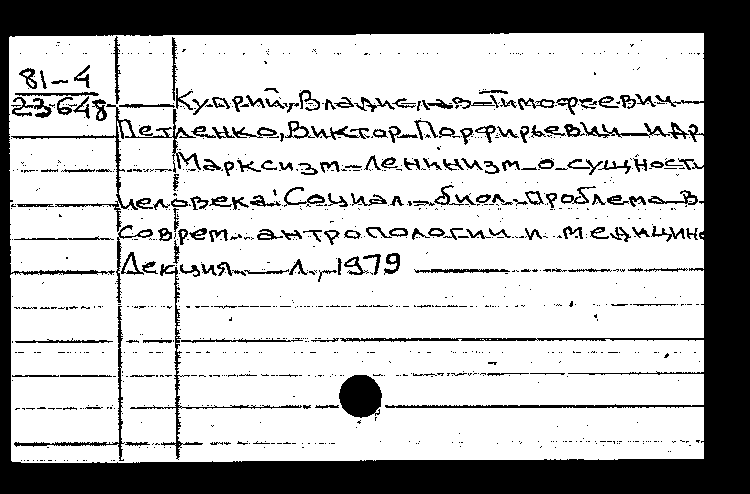 81-4
23648
Куприй, Владислав Тимофеевич
Петленко, Виктор Порфирьевич и др
Марксизм-Ленинизм о сущности
человека: Социал.-биол. проблема в
соврем. антропологии и медицине
Лекция. Л., 1979